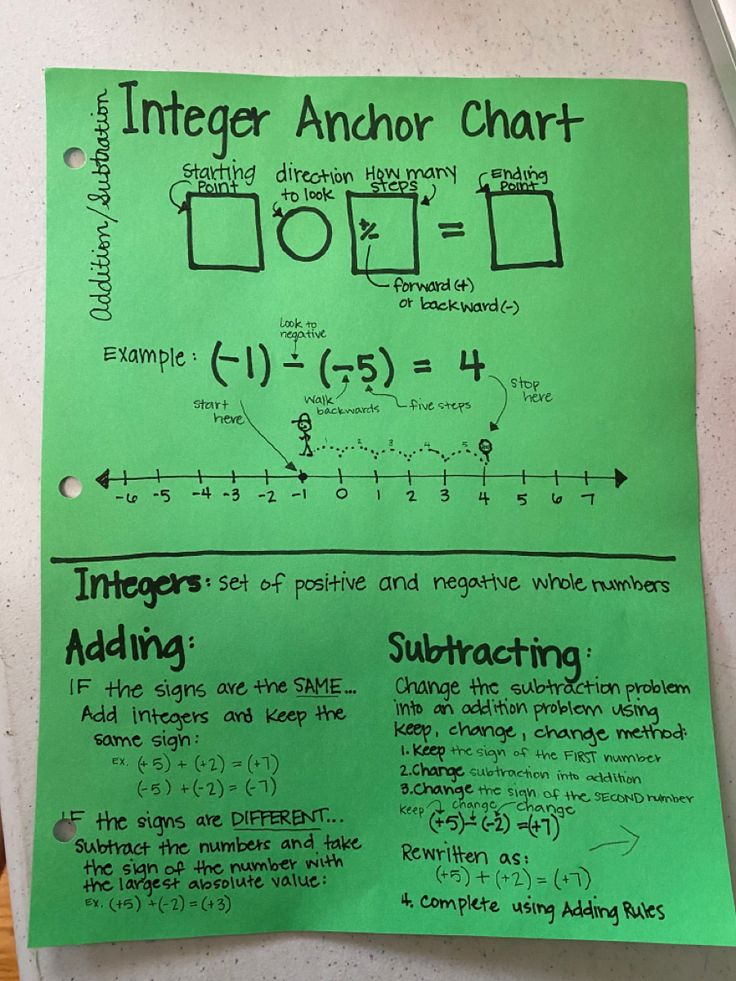 Addition/Subtration
Integer Anchor Chart
Starting Point
direction to look
How many steps
Ending Point
+/-
=
forward (+)
or backward (-)
Look to negative
Example: (-1) - (-5) = 4
Start here
Walk backwards
five steps
Stop here
1 2 3 4 5
-6 -5 -4 -3 -2 -1 0 1 2 3 4 5 6 7
Integers: set of positive and negative whole numbers
Adding:
IF the signs are the SAME...
Add integers and keep the
same sign:
EX. (+5) + (+2) = (+7)
(-5) + (-2) = (-7)
IF the signs are DIFFERENT...
Subtract the numbers and take
the sign of the number with
the largest absolute value:
EX. (+5) + (-2) = (+3)
Subtracting:
Change the subtraction problem
into an addition problem using
keep, change, change method:
1. Keep the sign of the FIRST number
2. Change subtraction into addition
3. Change the sign of the SECOND number
keep change change
(+5) - (-2) = (+7)
Rewritten as:
(+5) + (+2) = (+7)
4. Complete using Adding Rules